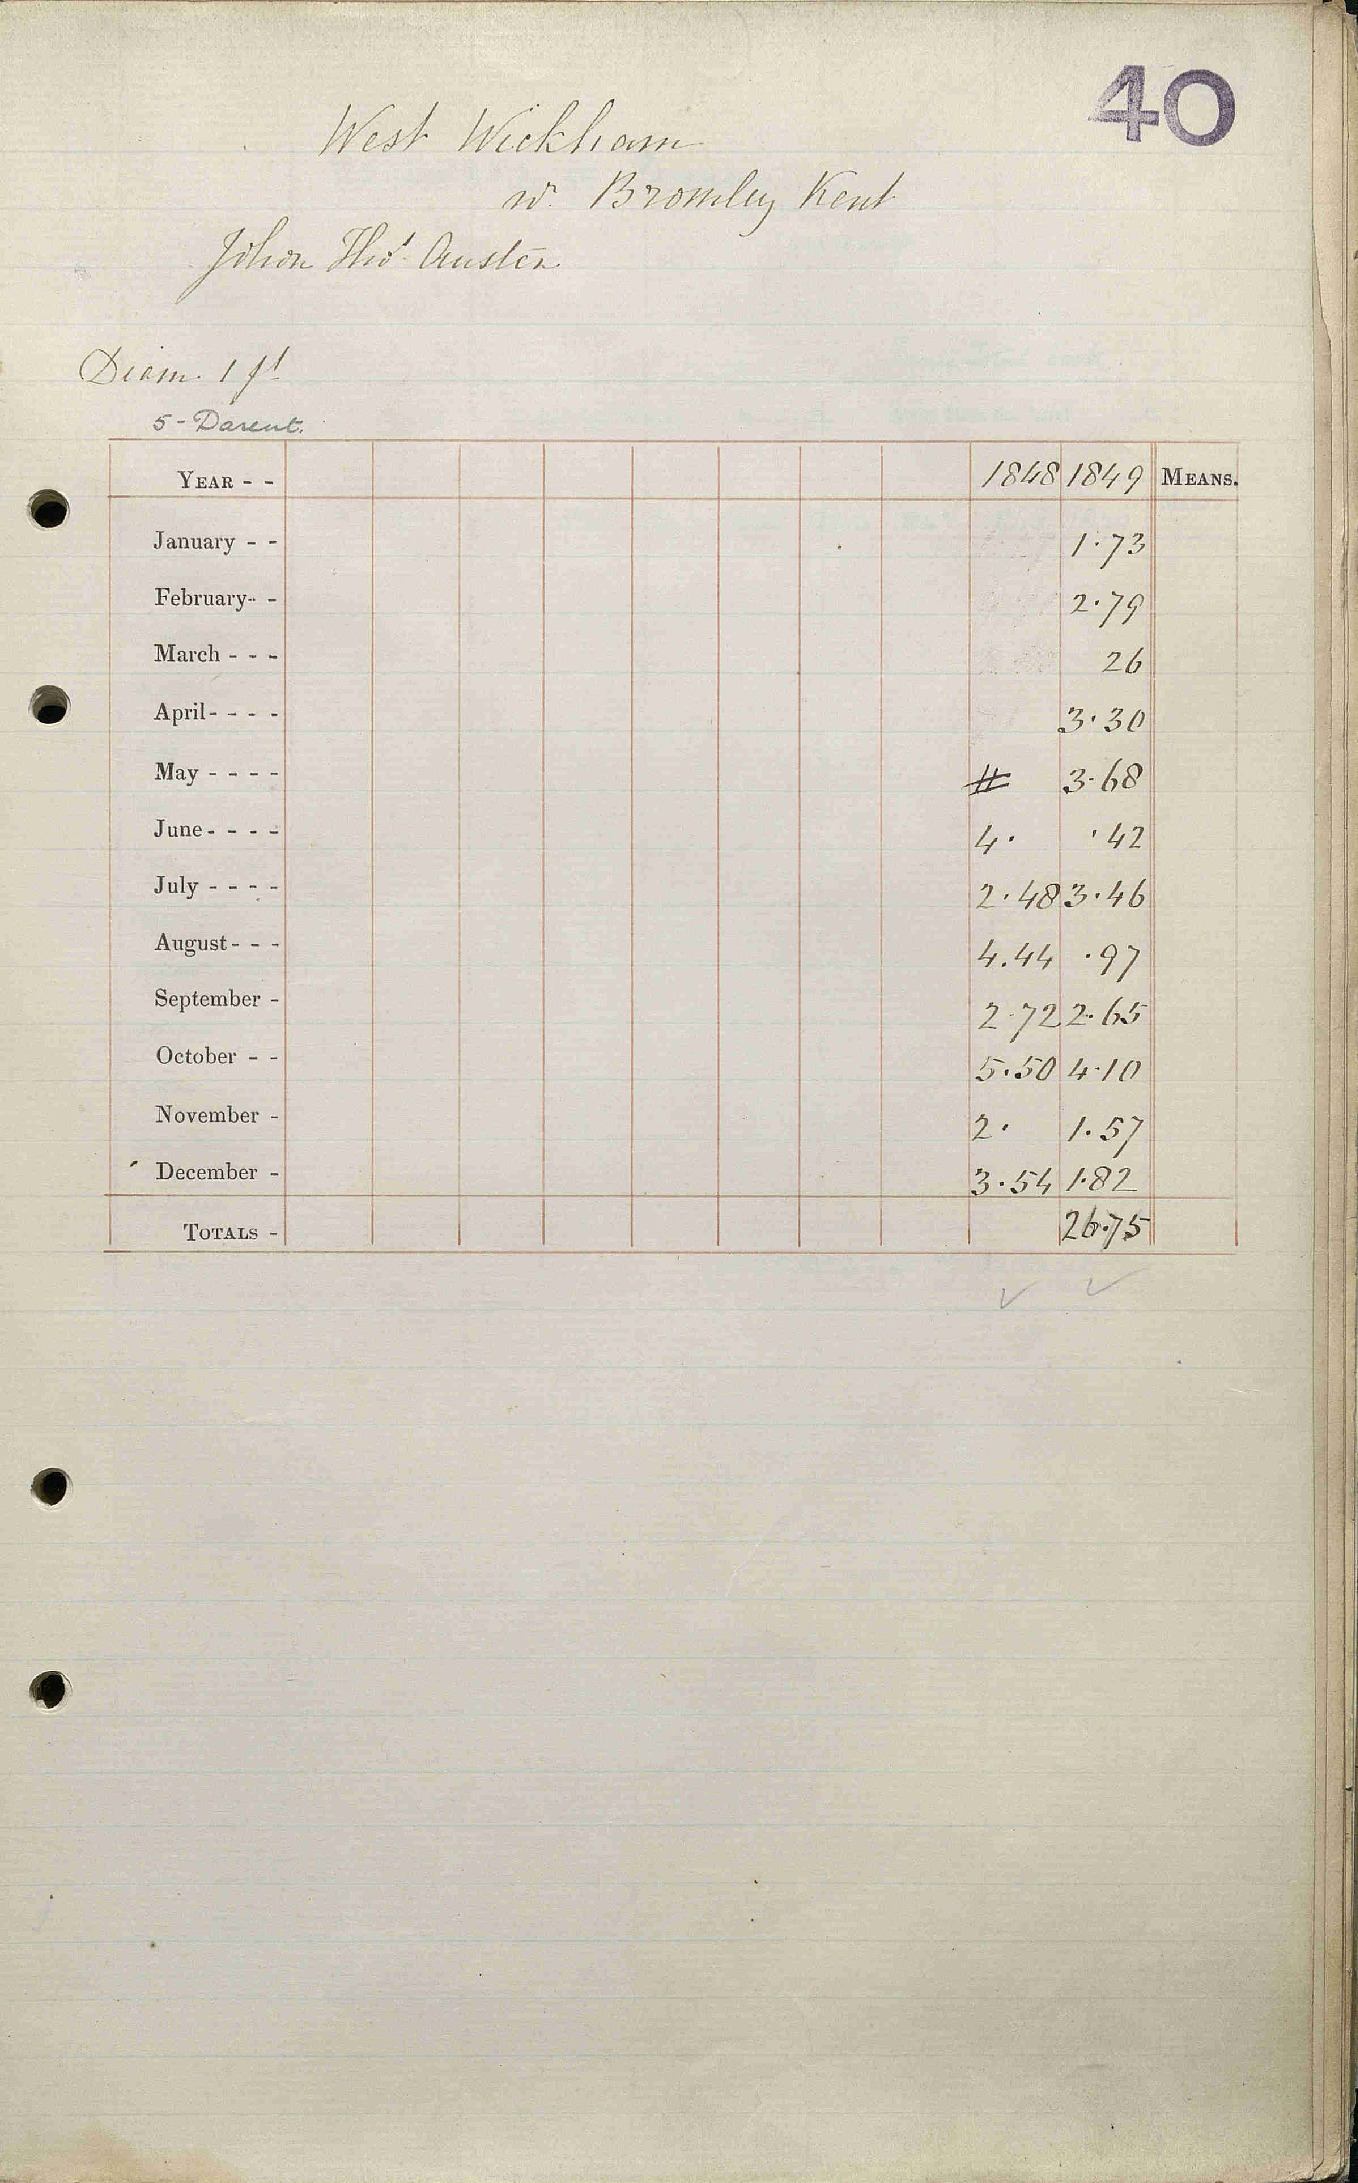 40
West Wickham
nr Bromley Kent
John Thos Austen
Diam. 1 ft
5 - Darent.
YEAR - - 1848 1849 MEANS.
January - - 1·73
February - - 2·79
March - - - 26
April - - - - 3·30
May - - - - # 3·68
June - - - - 4· ·42
July - - - - 2·48 3·46
August - - - 4.44 ·97
September - 2·72 2·65
October - - 5·50 4·10
November - 2· 1·57
December - 3·54 1·82
TOTALS - 26·75